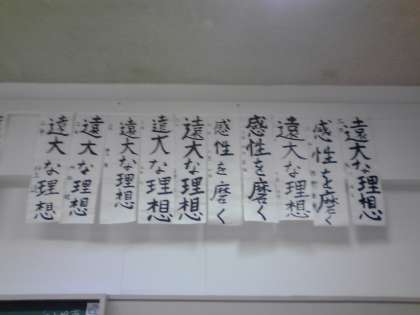 遠大な理想
感性を磨く
遠大な理想
感性を磨く
感性を磨く
遠大な理想
遠大な理想
遠大な理想
遠大な理想
遠大な理想